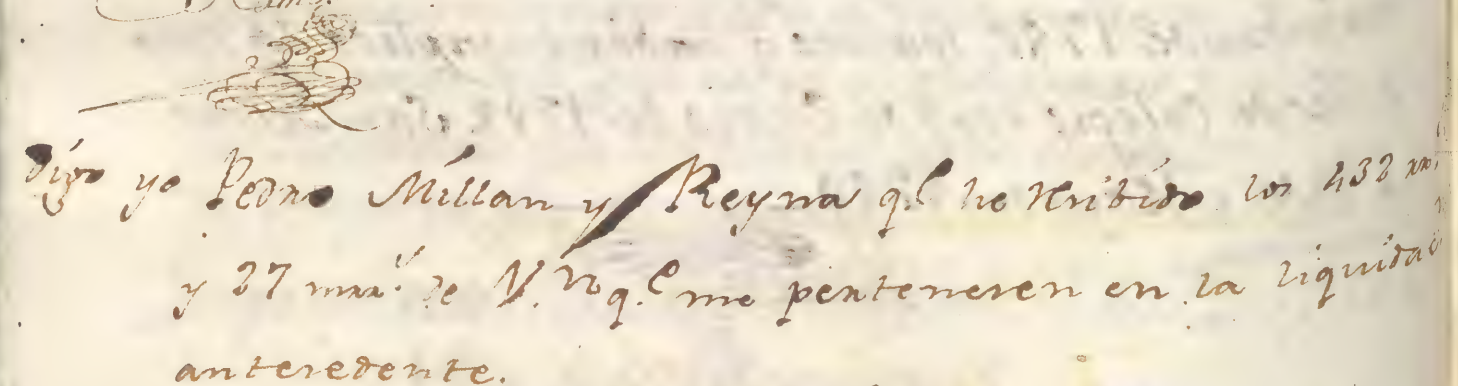 Digo yo Pedro Millan y Reyna q.e he recibido los 432 rr.s
y 27 mrr.s de V.n q.e me pertenecen en la liquida
antecedente.